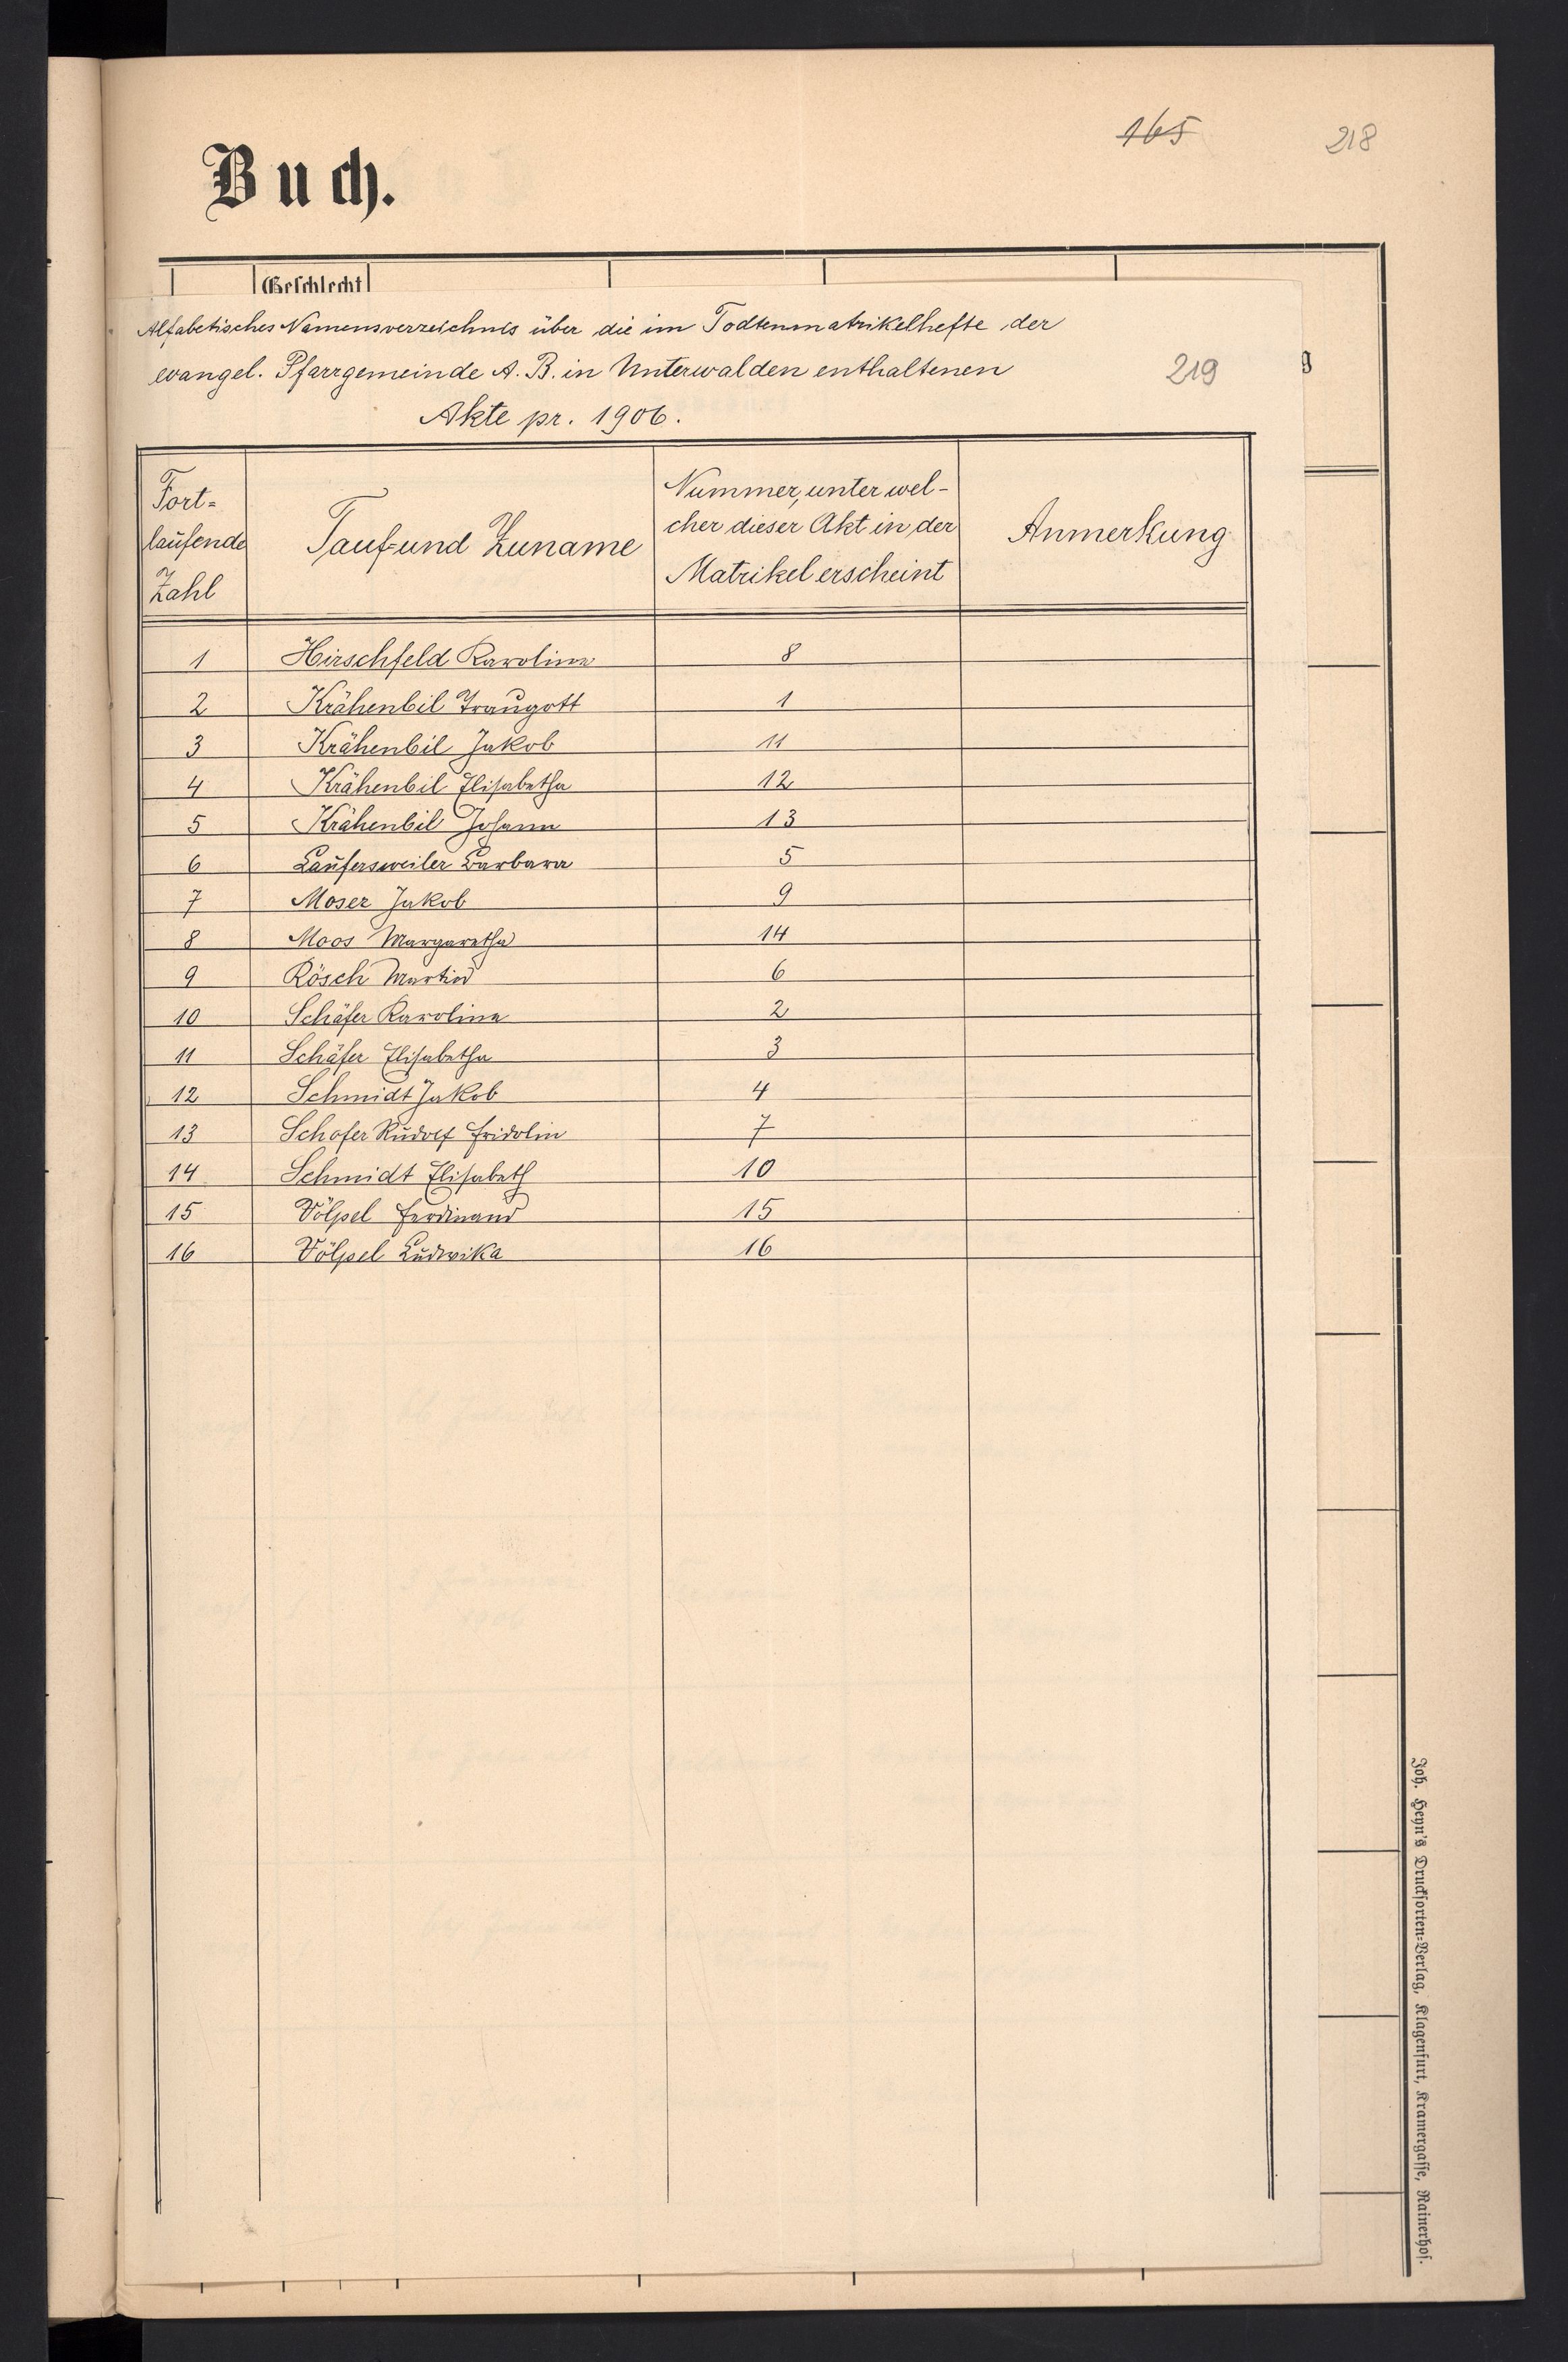 165 218
Buch.
Geschlecht
Alfabetisches Namensverzeichnis über die im Todtenmatrikelhefte der
evangel. Pfarrgemeinde A. B. in Unterwalden enthaltenen
219
Akte pr. 1906.
Fort-
laufende
Zahl
Tauf- und Zuname
Nummer, unter wel-
cher dieser Akt in der
Matrikel erscheint
Anmerkung
1 Hirschfeld Karolina 8
2 Krähenbil Traugott 1
3 Krähenbil Jakob 11
4 Krähenbil Elisabetha 12
5 Krähenbil Johann 13
6 Laufersweiler Barbara 5
7 Moser Jakob 9
8 Moos Margaretha 14
9 Rösch Martin 6
10 Schäfer Karolina 2
11 Schäfer Elisabetha 3
12 Schmidt Jakob 4
13 Schofer Rudolf Fridolin 7
14 Schmidt Elisabeth 10
15 Völpel Ferdinand 15
16 Völpel Ludwika 16
Joh. Heyn's Drucksorten-Verlag, Klagenfurt, Kramergasse, Rainerhof.